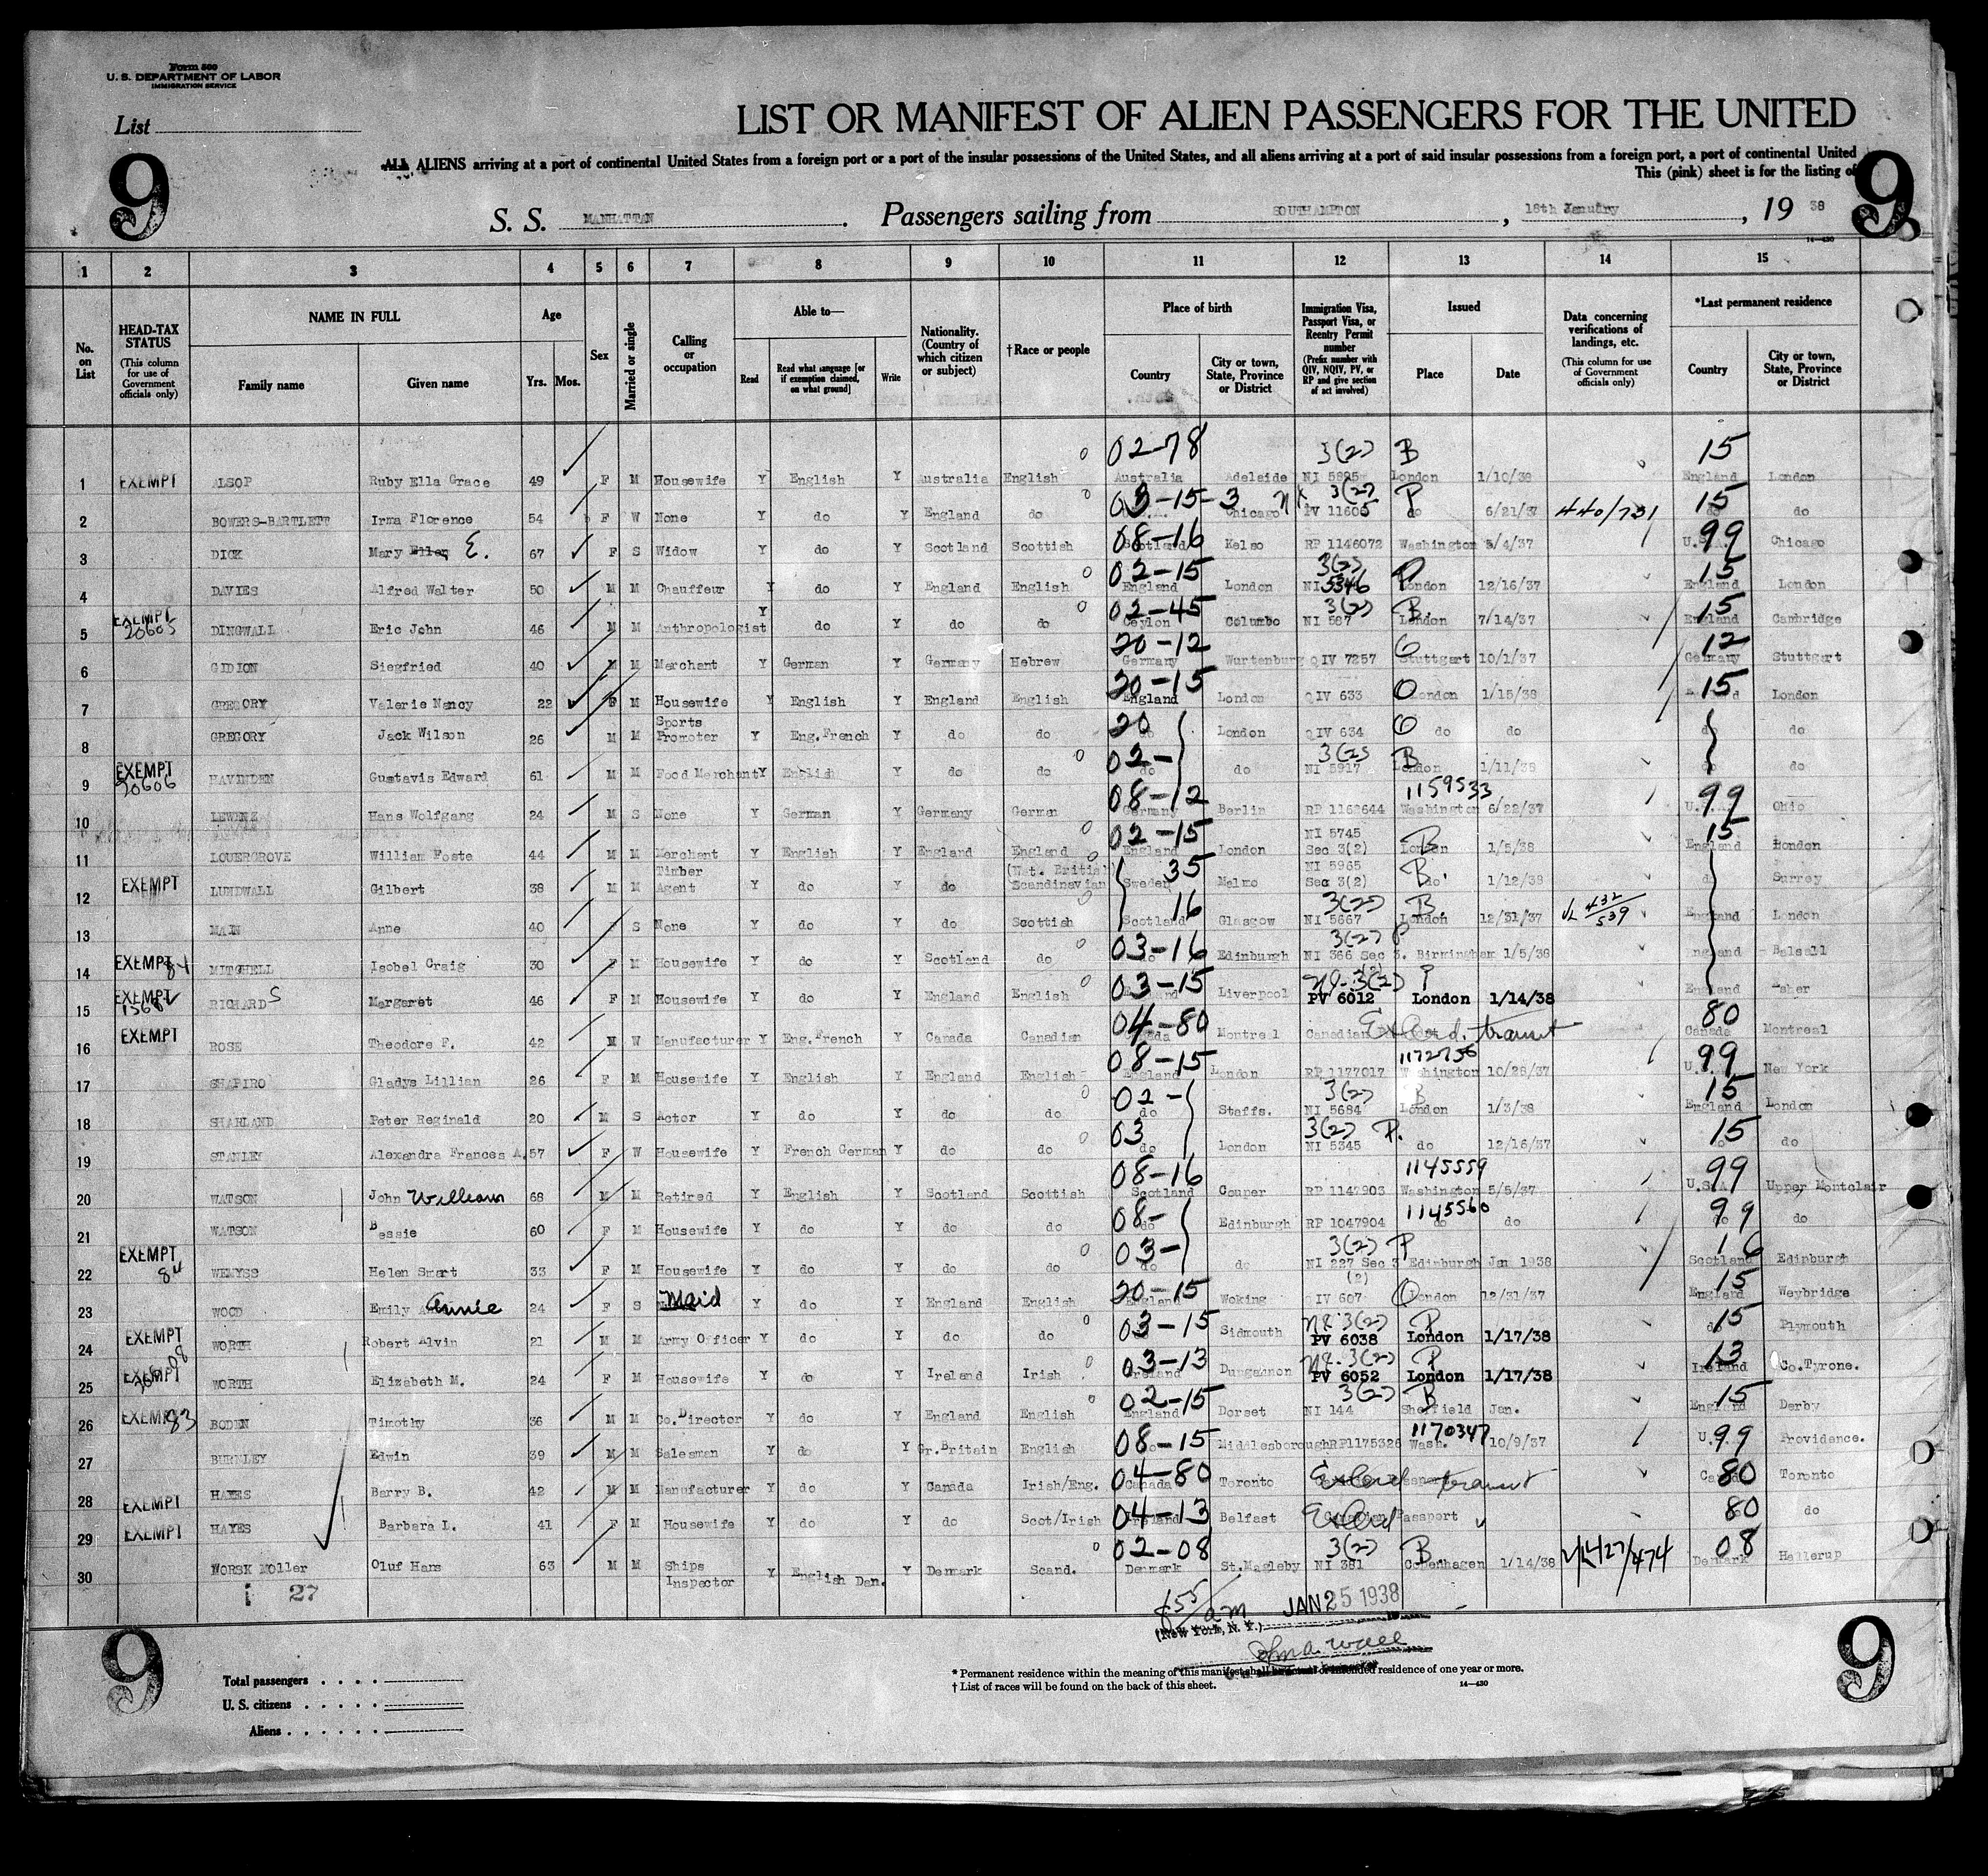 Form 500
U. S. DEPARTMENT OF LABOR
IMMIGRATION SERVICE
List
LIST OR MANIFEST OF ALIEN PASSENGERS FOR THE UNITED
9
ALL ALIENS arriving at a port of continental United States from a foreign port or a port of the insular possessions of the United States, and all aliens arriving at a port of said insular possessions from a foreign port, a port of continental United
This (pink) sheet is for the listing of
9
S. S. MANHATTAN. Passengers sailing from SOUTHAMPTON, 18th January, 19 38
14-430
1 2 3 4 5 6 7 8 9 10 11 12 13 14 15
No. on List
HEAD-TAX STATUS (This column for use of Government officials only)
NAME IN FULL
Family name Given name
Age
Yrs. Mos.
Sex
Married or single
Calling or occupation
Able to—
Read Read what language [or if exemption claimed, on what ground] Write
Nationality. (Country of which citizen or subject)
†Race or people
Place of birth
Country City or town, State, Province or District
Immigration Visa, Passport Visa, or Reentry Permit number (Prefix number with QIV, NQIV, PV, or RP and give section of act involved)
Issued
Place Date
Data concerning verifications of landings, etc. (This column for use of Government officials only)
*Last permanent residence
Country City or town, State, Province or District
02-78 3(2) B 15
1 EXEMPT ALSOP Ruby Ella Grace 49 F M Housewife Y English Y Australia English Australia Adelaide NI 5895 London 1/10/38 England London
03-15-3 3(2) P 15
2 BOWERS-BARTLETT Irma Florence 54 F W None Y do Y England do Chicago PV 11605 do 6/21/37 440/731 do do
08-16 99
3 DICK Mary Ellen E. 67 F S Widow Y do Y Scotland Scottish Scotland Kelso RP 1146072 Washington 5/4/37 U.S.A. Chicago
02-15 3(2) P 15
4 DAVIES Alfred Walter 50 M M Chauffeur Y do Y England English England London NI 5346 London 12/16/37 England London
EXEMPT 02-45 3(2) B. 15
5 20605 DINGWALL Eric John 46 M M Anthropologist Y do Y do do Ceylon Columbo NI 567 London 7/14/37 England Cambridge
20-12 O 12
6 GIDION Siegfried 40 M M Merchant Y German Y Germany Hebrew Germany Wurtenburg QIV 7257 Stuttgart 10/1/37 Germany Stuttgart
20-15 O 15
7 GREGORY Valerie Nancy 22 F M Housewife Y English Y England English England London QIV 633 London 1/15/38 London
20 O
8 GREGORY Jack Wilson 26 M M Sports Promoter Y Eng.French Y do do London QIV 634 do do do do
EXEMPT 02- 3(2) B
9 20606 HAVINDEN Gustavis Edward 61 M M Food Merchant Y English Y do do do do NI 5917 London 1/11/38 do do
08-12 1159533 99
10 LEWENZ Hans Wolfgang 24 M S None Y German Y Germany German Germany Berlin RP 1162644 Washington 6/22/37 U.S.A. Ohio
02-15 B 15
11 LOUERGROVE William Foste 44 M M Merchant Y English Y England England England London NI 5745 Sec 3(2) London 1/5/38 England London
35 B.
12 EXEMPT LUNDWALL Gilbert 38 M M Timber Agent Y do Y do (Nat. British) Scandinavian Sweden Malmo NI 5965 Sec 3(2) do 1/12/38 do Surrey
16 3(2) B. 432/539
13 MAIN Anne 40 F S None Y do Y do Scottish Scotland Glasgow NI 5667 London 12/31/37 England London
03-16 3(2) P
14 EXEMPT 84 MITCHELL Isobel Craig 30 F M Housewife Y do Y Scotland do do Edinburgh NI 366 Sec 3. (2) Birmingham 1/5/38 England Balsall
EXEMPT 03-15 3(2) P
15 RICHARDS Margaret 46 F M Housewife Y do Y England English England Liverpool PV 6012 London 1/14/38 England Esher
04-80 80
16 EXEMPT ROSE Theodore F. 42 M W Manufacturer Y Eng.French Y Canada Canadian Canada Montreal Canadian transit Canada Montreal
08-15 1172756 99
17 SHAPIRO Gladys Lillian 26 F M Housewife Y English Y England English England London RP 1177017 Washington 10/26/37 U.S.A. New York
02- 3(2) B 15
18 SHARLAND Peter Reginald 20 M S Actor Y do Y do do do Staffs. NI 5684 London 1/3/38 England London
03 3(2) P. 15
19 STANLEY Alexandra Frances A. 57 F W Housewife Y French German Y do do do London NI 5345 do 12/16/37 do do
08-16 1145559 99
20 WATSON John William 68 M M Retired Y English Y Scotland Scottish Scotland Couper RP 1142903 Washington 5/5/37 U.S.A Upper Montclair
08- 1145560 99
21 WATSON Bessie 60 F M Housewife Y do Y do do do Edinburgh RP 1047904 do do do do
EXEMPT 03- 3(2) P 16
22 84 WEMYSS Helen Smart 33 F M Housewife Y do Y do do do do NI 227 Sec 3 (2) Edinburgh Jan 1938 Scotland Edinburgh
20-15 O 15
23 WOOD Emily Annie 24 F S Maid Y do Y England English England Woking QIV 607 London 12/31/37 England Weybridge
03-15 3(2) P 15
24 EXEMPT WORTH Robert Alvin 21 M M Army Officer Y do Y do do Sidmouth PV 6038 London 1/17/38 do Plymouth
03-13 3(2) P 13
25 EXEMPT WORTH Elizabeth M. 24 F M Housewife Y do Y Ireland Irish Ireland Dungannon PV 6052 London 1/17/38 Ireland Co.Tyrone.
02-15 3(2) B 15
26 EXEMPT 83 BODEN Timothy 36 M M Co.Director Y do Y England English England Dorset NI 144 Sheffield Jan. England Derby
08-15 1170347 99
27 BURNLEY Edwin 39 M M Salesman Y do Y Gr.Britain English do Middlesborough RP1175326 Wash. 10/9/37 U.S. Providence.
04-80 80
28 EXEMPT HAYES Barry B. 42 M M Manufacturer Y do Y Canada Irish/Eng. Canada Toronto transit Canada Toronto
04-13 80
29 EXEMPT HAYES Barbara L. 41 F M Housewife Y do Y do Scot/Irish Ireland Belfast Canadian Passport do
02-08 3(2) B. 08
30 WORSK MOLLER Oluf Hans 63 M M Ships Inspector Y English Dan. Y Denmark Scand. Denmark St.Magleby NI 381 Copenhagen 1/14/38 427/474 Denmark Hellerup
27
855 am JAN 25 1938
(New York, N. Y.)
9
9
Total passengers
U. S. citizens
Aliens
* Permanent residence within the meaning of this manifest shall be actual or intended residence of one year or more.
† List of races will be found on the back of this sheet.
14-430